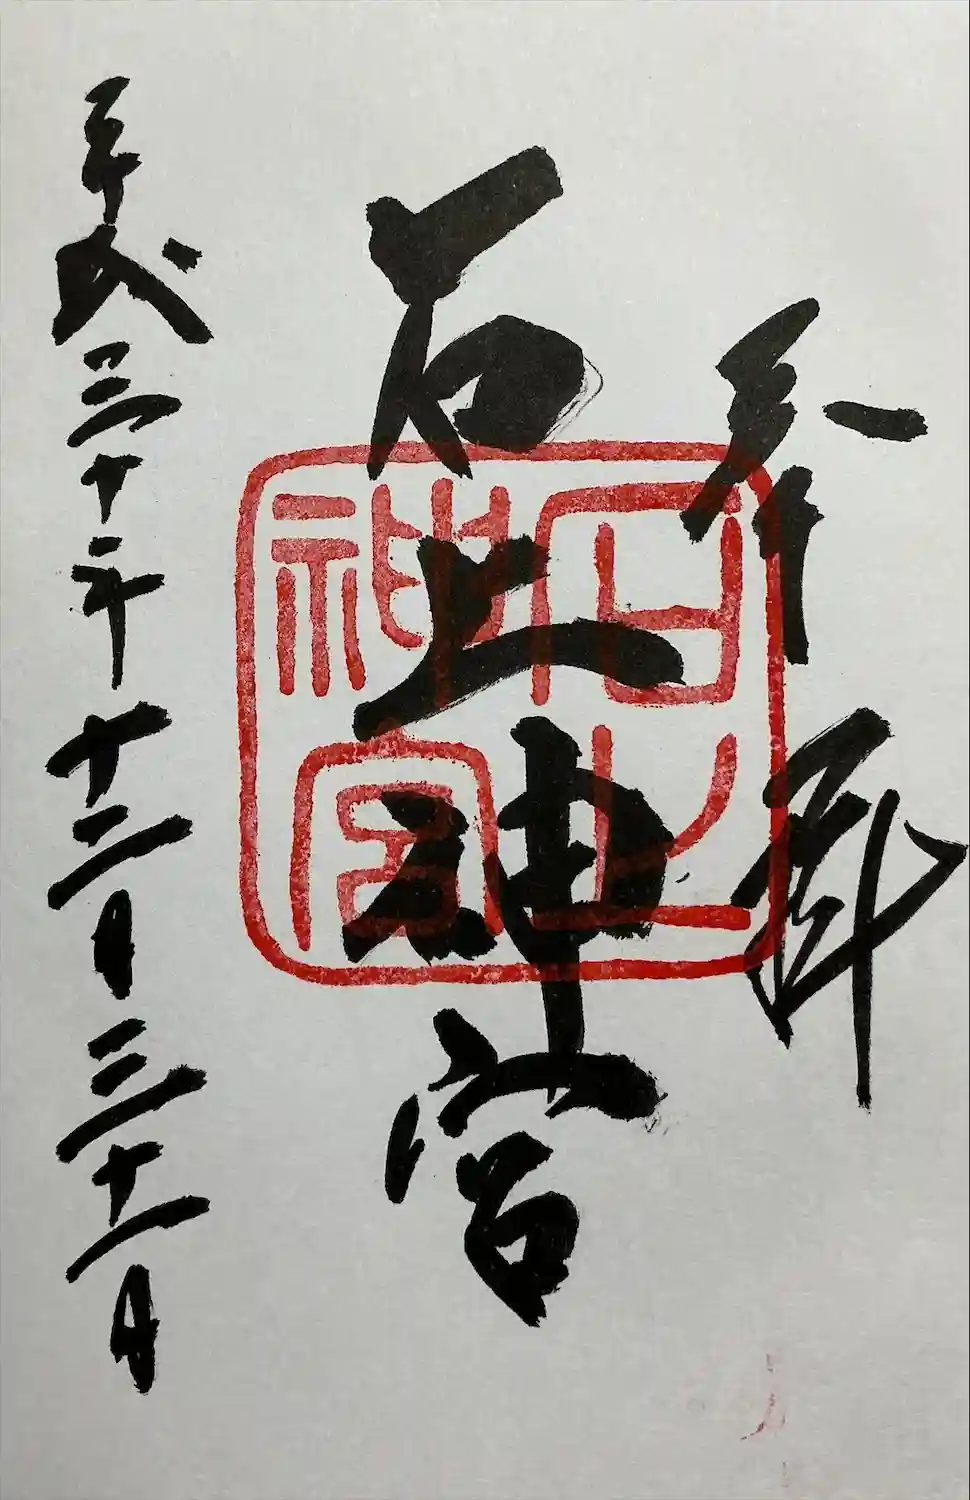 奉拝
石上神宮
石上神宮
平成三十年十二月三十一日